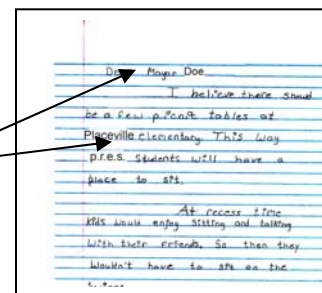 Dear Mayor Doe
I believe there should
be a few picnic tables at
Placeville elementary. This way
p.r.e.s. students will have a
place to sit.
At recess time
kids would enjoy sitting and talking
with their friends. So then they
wouldn't have to sit on the